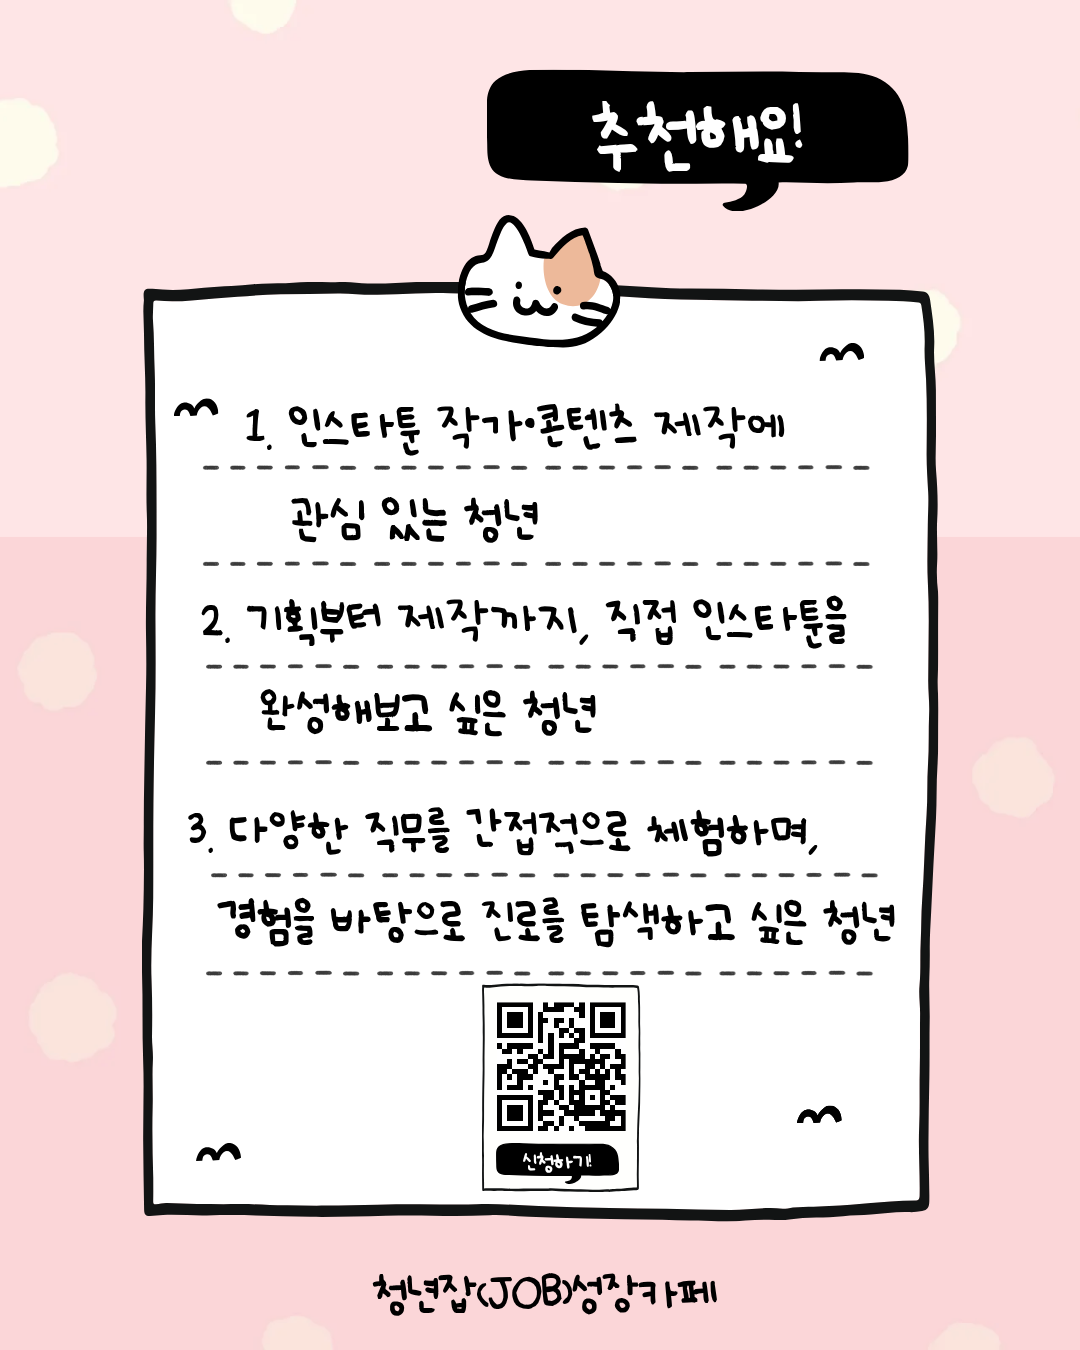 추천해요!
1. 인스타툰 작가·콘텐츠 제작에
관심 있는 청년
2. 기획부터 제작까지, 직접 인스타툰을
완성해보고 싶은 청년
3. 다양한 직무를 간접적으로 체험하며,
경험을 바탕으로 진로를 탐색하고 싶은 청년
신청하기!
청년잡(JOB)성장카페